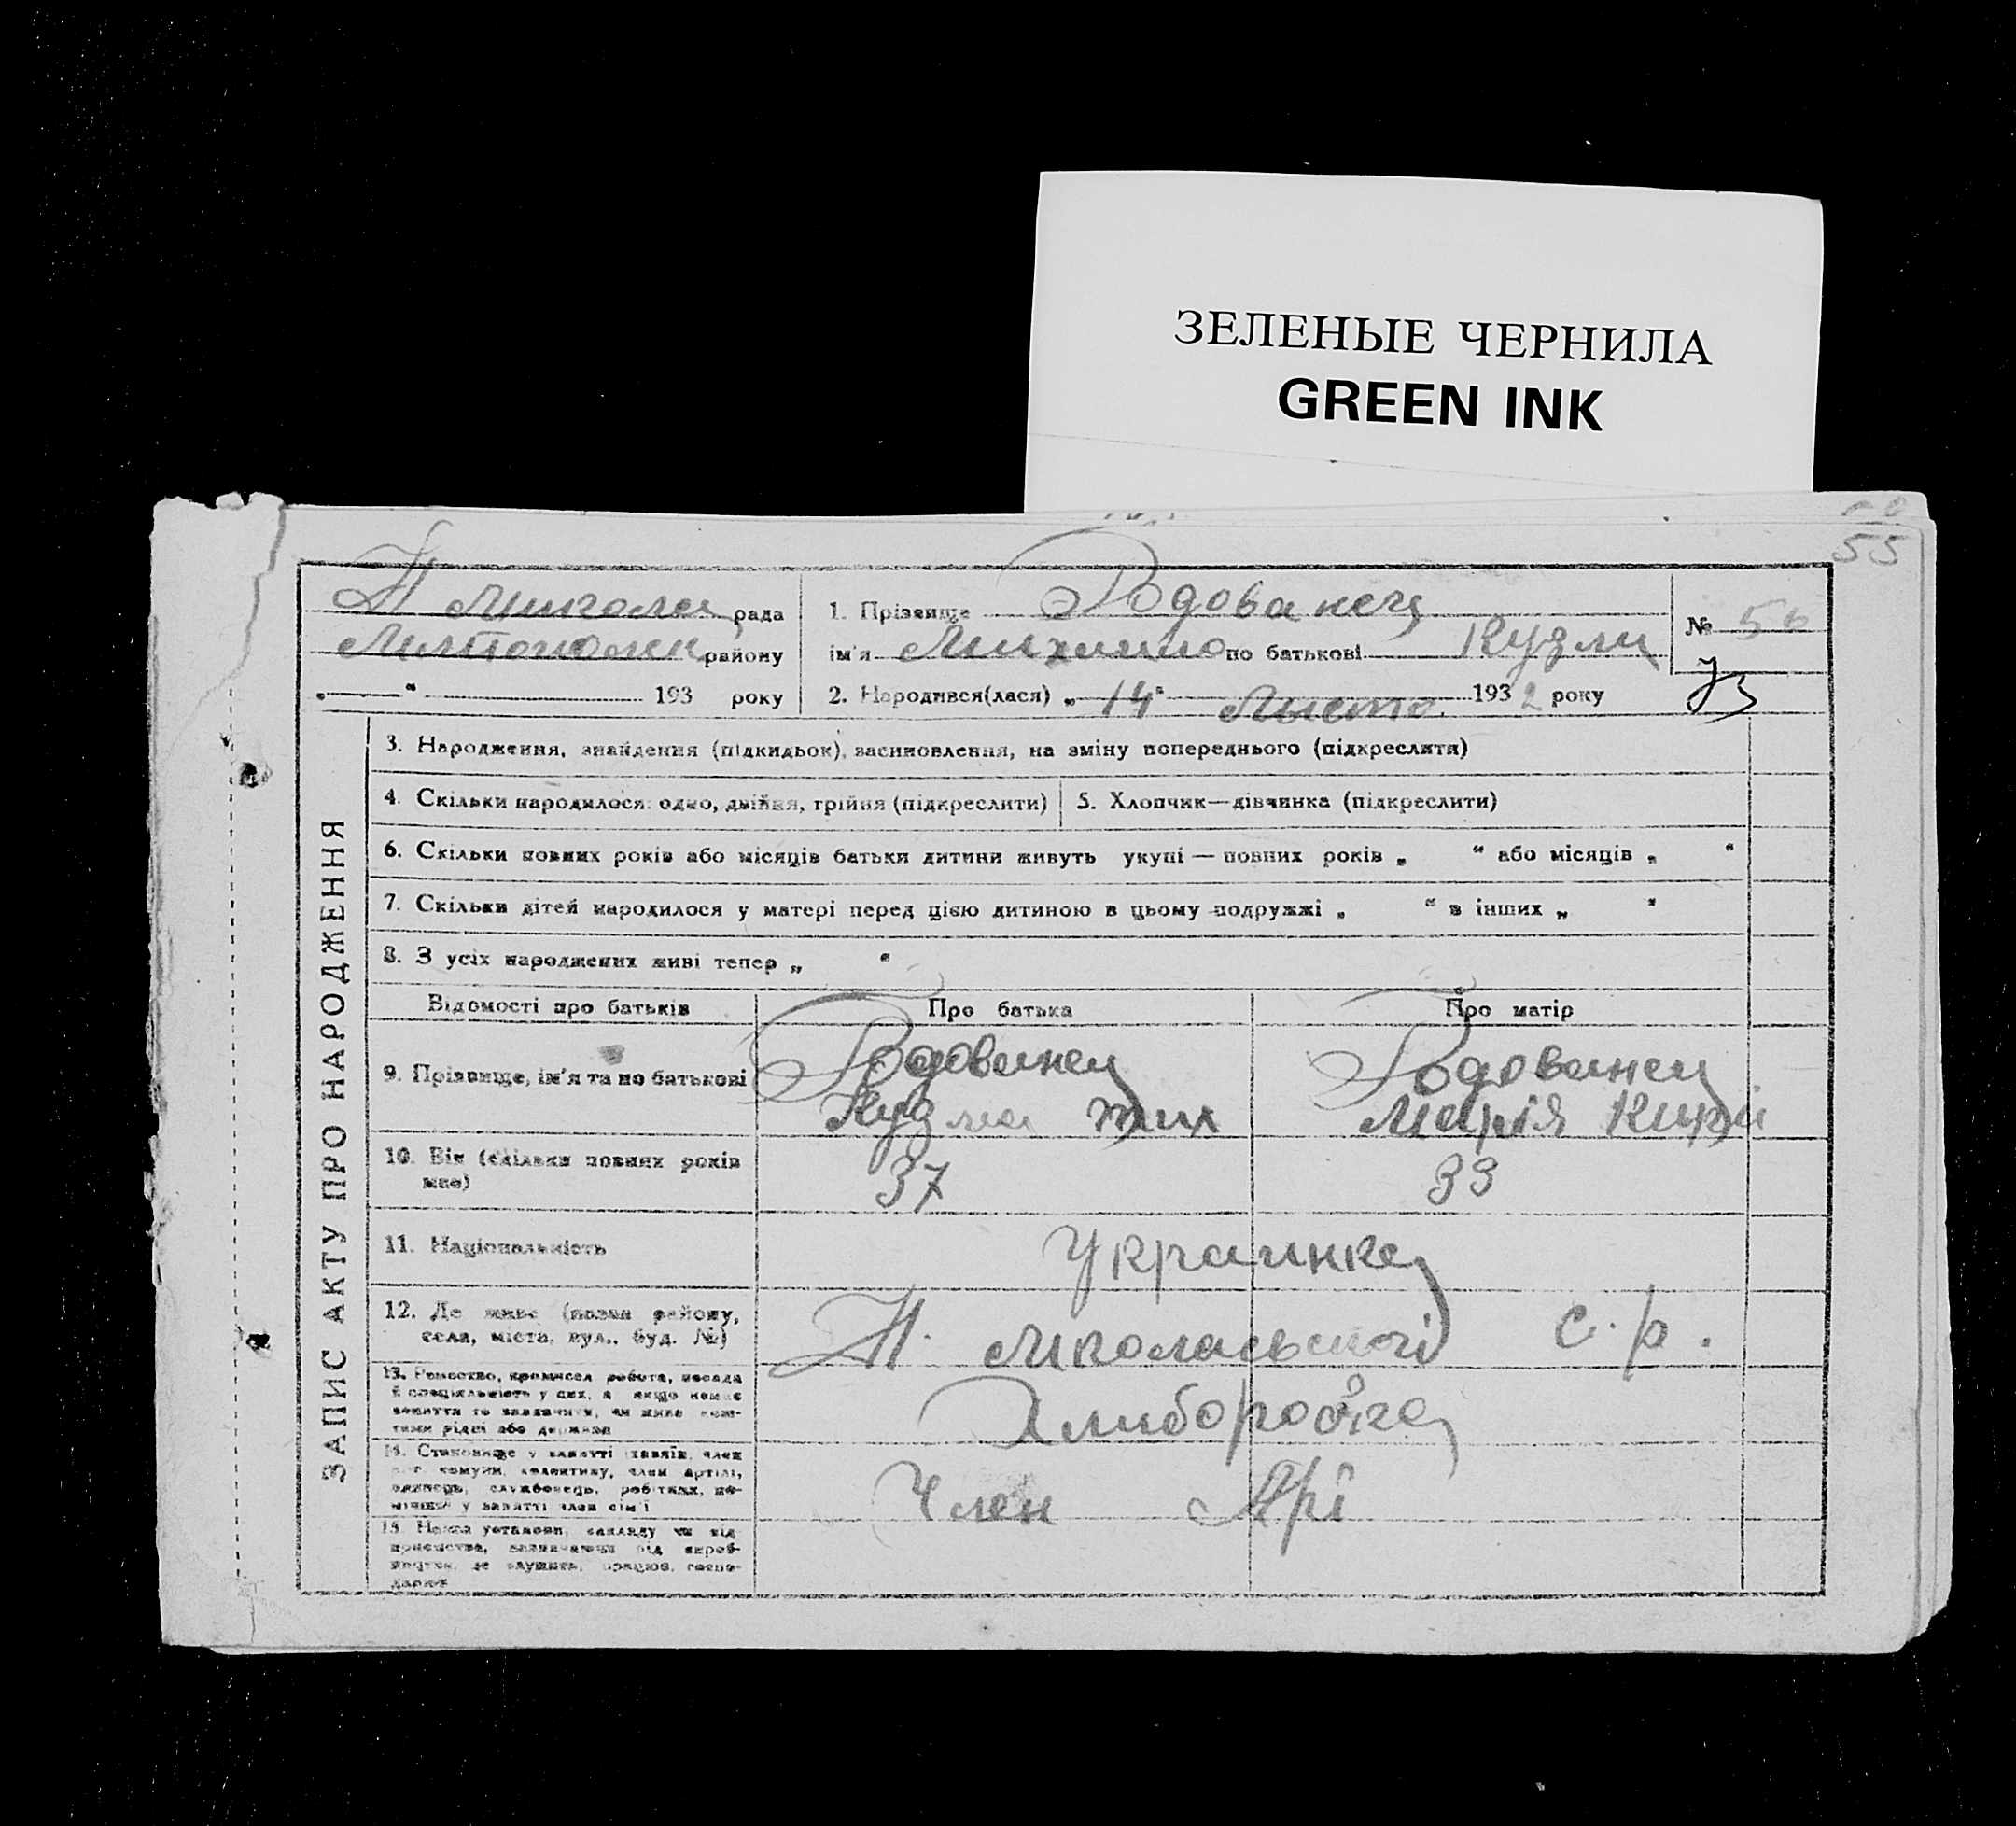 ЗЕЛЕНЫЕ ЧЕРНИЛА
GREEN INK
55
Н Микола рада
району
„ “ 193 року
1. Прізвище Родованец
ім'я Михайло по батькові Кузми
2. Народився(лася) „14“ Листо. 1932 року
№ 56
ЗАПИС АКТУ ПРО НАРОДЖЕННЯ
3. Народження, знайдення (підкидьок), засиновлення, на зміну попереднього (підкреслити)
4. Скільки народилося: одно, двійня, трійня (підкреслити)
5. Хлопчик—дівчинка (підкреслити)
6. Скільки повних років або місяців батьки дитини живуть укупі — повних років „ “ або місяців „ “
7. Скільки дітей народилося у матері перед цією дитиною в цьому подружжі „ “ в інших „ “
8. З усіх народжених живі тепер „ “
Відомості про батьків
Про батька
Про матір
9. Прізвище, ім'я та по батькові
Родованец
Кузма
Родованец
Марія
10. Вік (скільки повних років має)
37
33
11. Національність
Украинка
12. Де живе (назва району,
села, міста, вул., буд. №)
Н. Миколаєвскої с. р.
13. Ремество, промисел робота, посада
й спеціяльність у них, а якщо немає
заняття то зазначити, чи живе кош-
тами рідні або держави
Хлибороб
14. Становище у занятті хазяїн, член
комуни, колективу, член артілі,
одинець, службовець, робітник, по-
мічний у занятті член сім'ї
Член Арі
15. Назва установи, закладу чи під
приємства, зазначаючи від вироб-
де служить, працює, госпо-
дарює